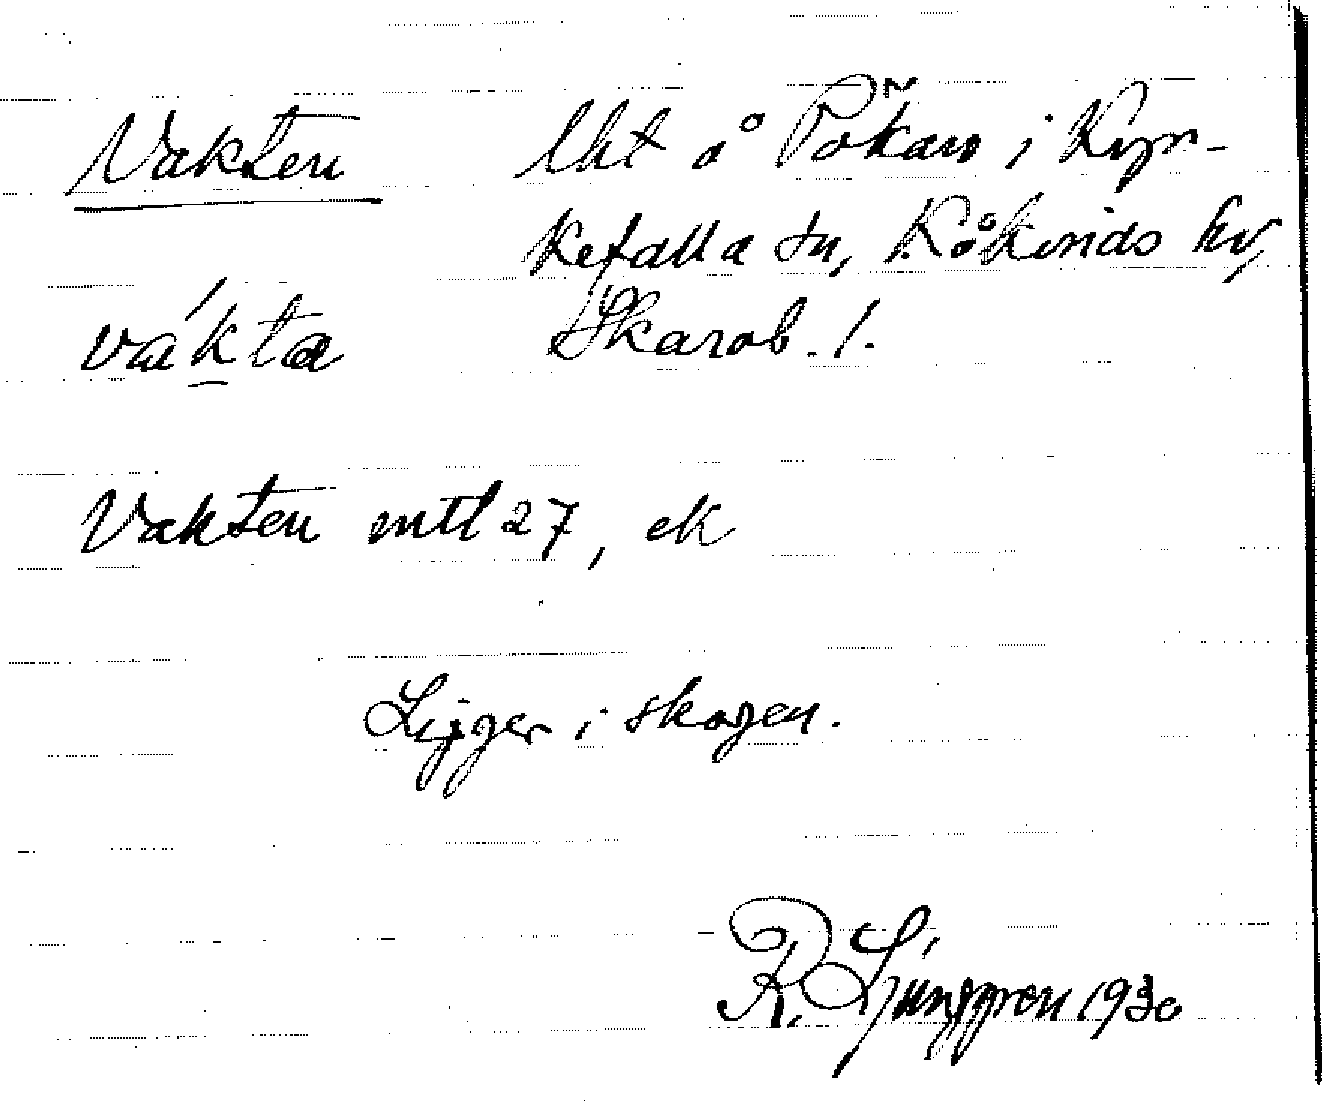 Vakten lht å Pökan i Kyr-
kefalla sn, Kåkinds hd,
vákta Skarab. l.
Vakten mtl 27, ek
Ligger i skogen.
R. Ljunggren 1930